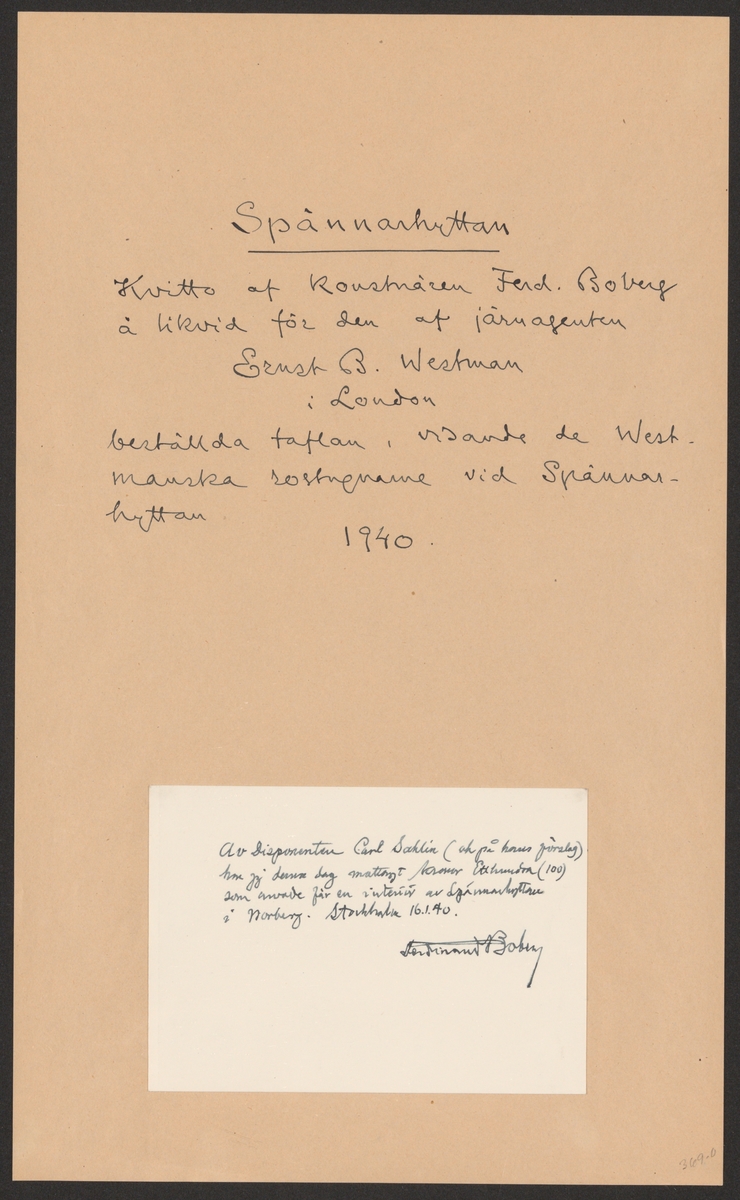 Spännarhyttan
Kvitto af konstnären Ferd. Boberg
å likvid för den af järnagenten
Ernst B. Westman
i London
beställda taflan, visande de West-
manska rostugnarne vid Spännar-
hyttan
1940.
Av Disponenten Carl Sahlin (och på hans förslag)
har jag denna dag mottagit kronor Etthundra (100)
som arvode för en interiör av Spännarhyttan
i Norberg. Stockholm 16.1.40.
Ferdinand Boberg
369-0